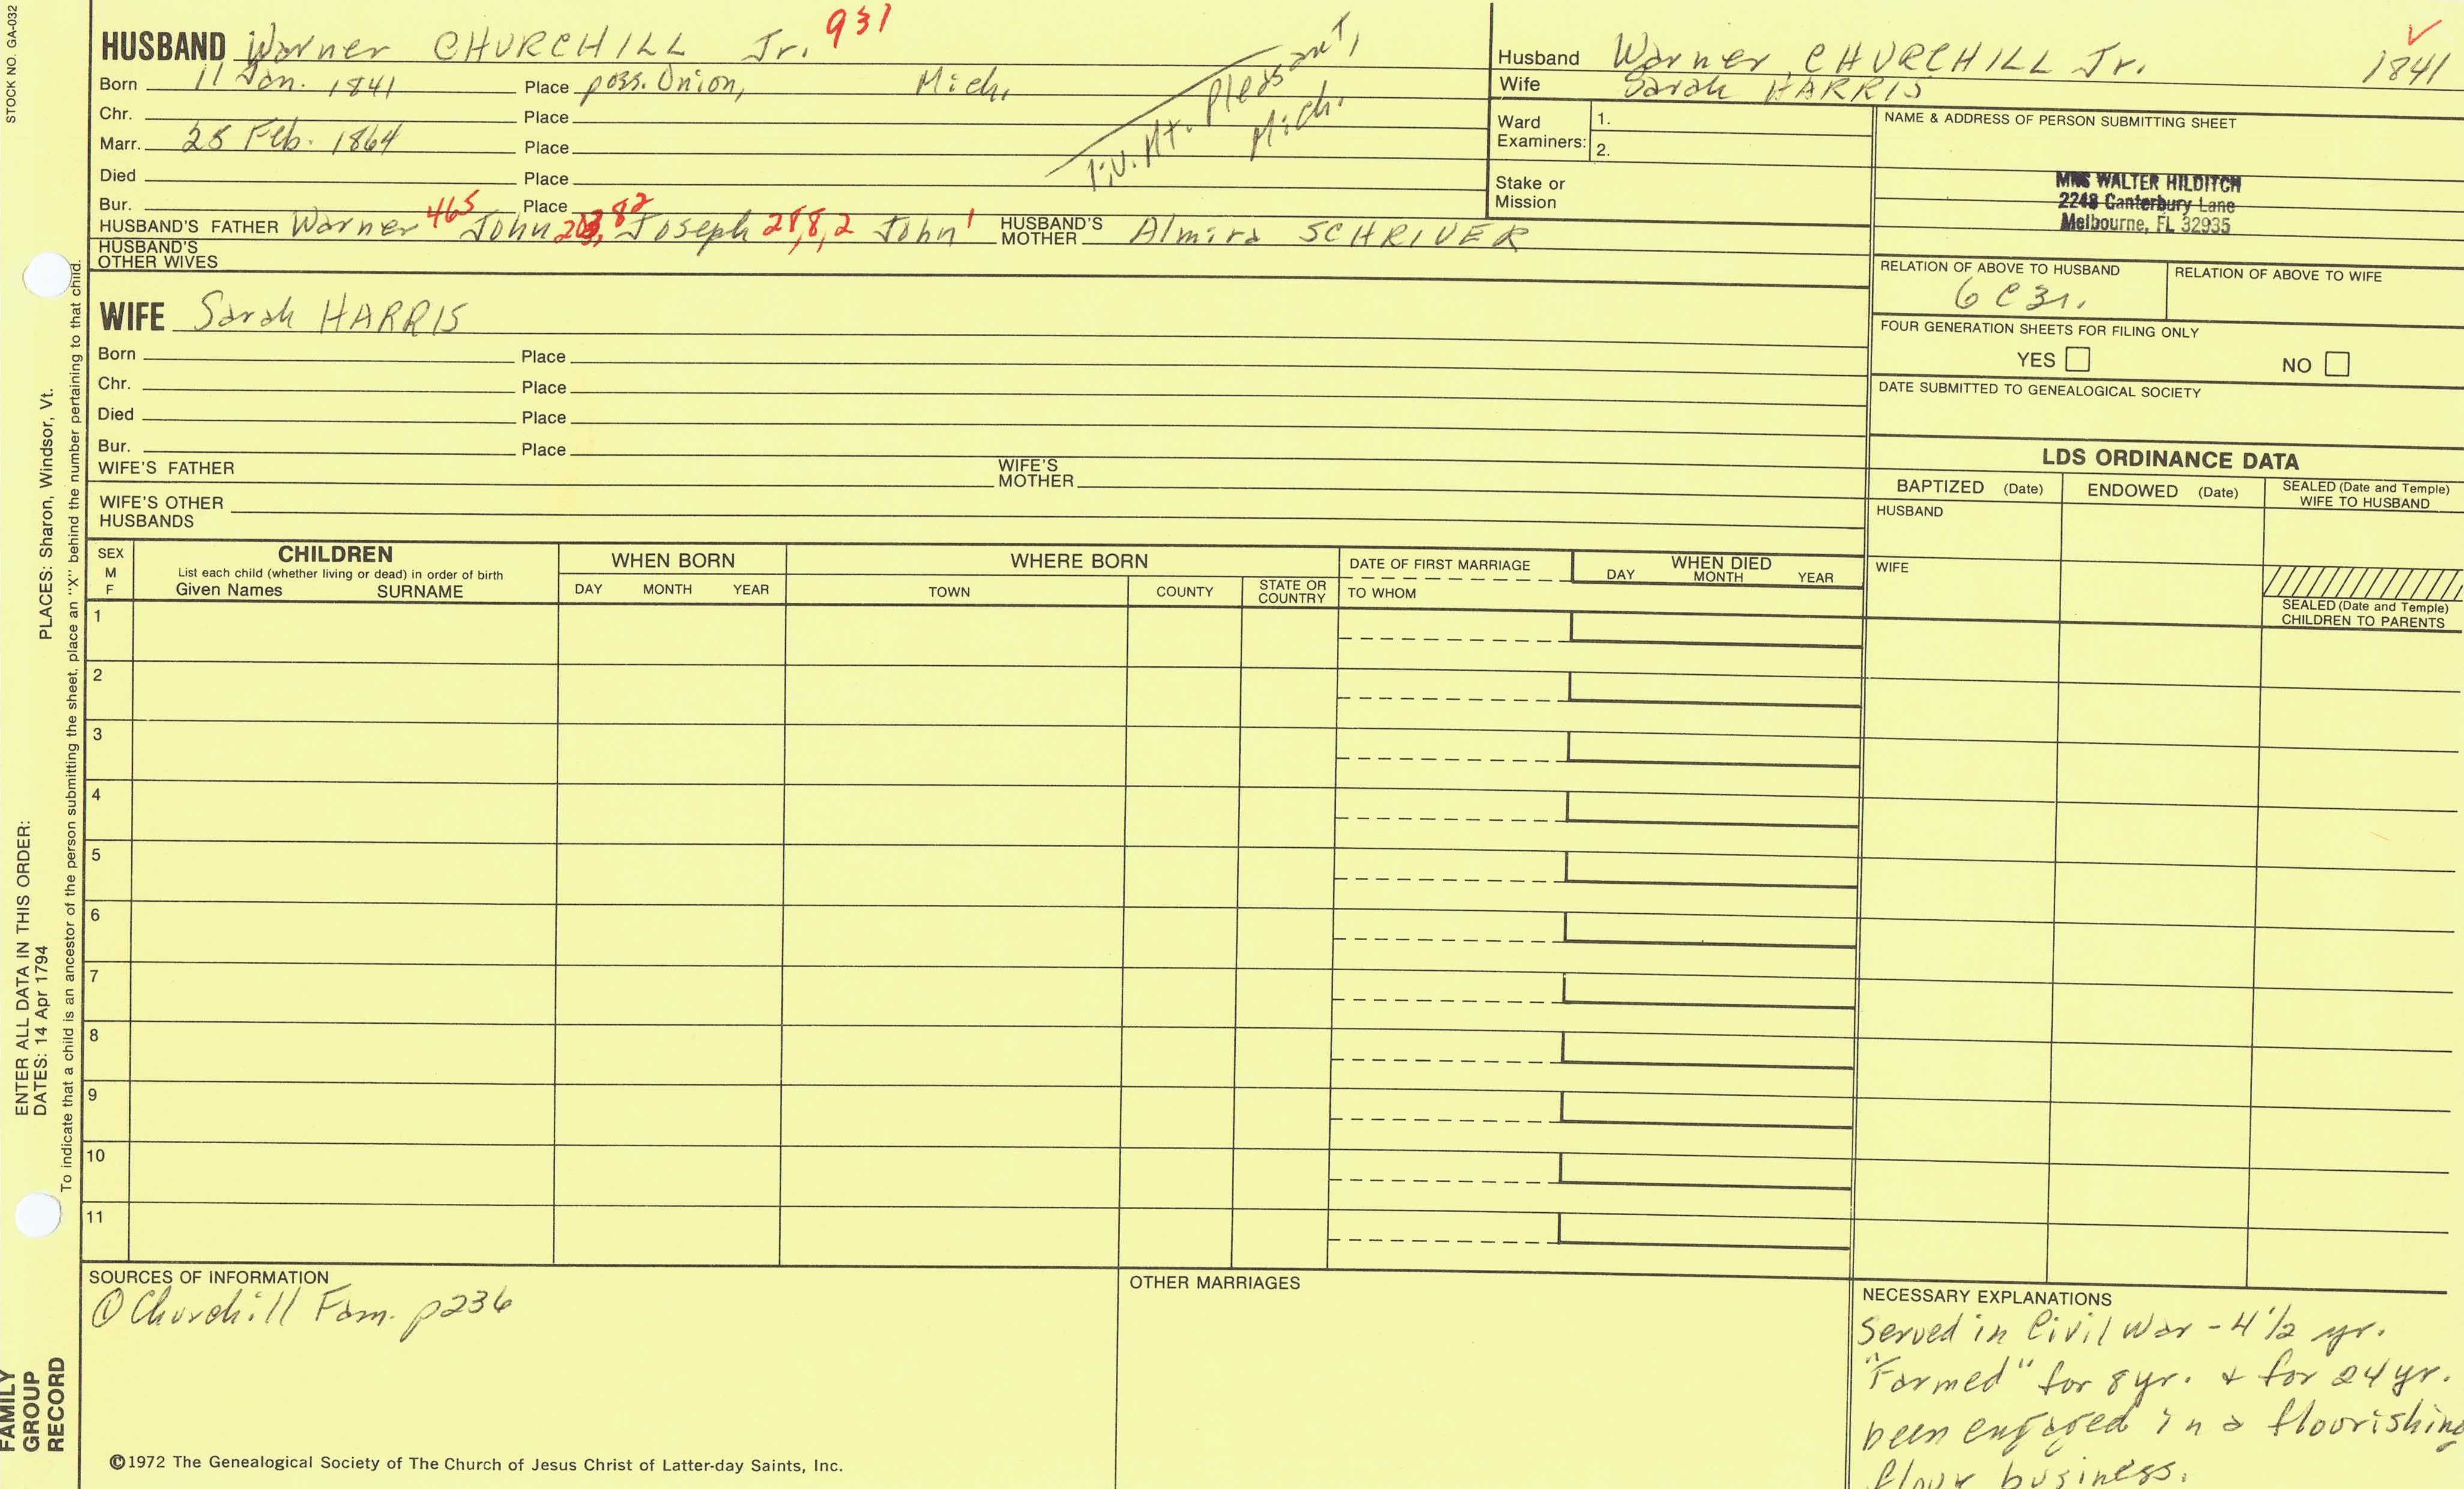 STOCK NO. GA-032
HUSBAND Warner CHURCHILL Jr. 931
Born 11 Jan. 1841 Place poss. Union, Mich.
Chr. Place
Marr. 25 Feb. 1864 Place
liv. Mt. pleasant, Mich.
Died Place
Bur. Place
HUSBAND'S FATHER Warner 465 John 82 Joseph 28,8,2 John 1 HUSBAND'S MOTHER Almira SCHRIVER
HUSBAND'S OTHER WIVES
Husband Warner CHURCHILL Jr. 1841
Wife Sarah HARRIS
Ward Examiners: 1.
2.
Stake or Mission
NAME & ADDRESS OF PERSON SUBMITTING SHEET
MRS WALTER HILDITCH
2248 Canterbury Lane
Melbourne, FL 32935
RELATION OF ABOVE TO HUSBAND
6 C 3r.
RELATION OF ABOVE TO WIFE
FOUR GENERATION SHEETS FOR FILING ONLY
YES NO
DATE SUBMITTED TO GENEALOGICAL SOCIETY
WIFE Sarah HARRIS
Born Place
Chr. Place
Died Place
Bur. Place
WIFE'S FATHER WIFE'S MOTHER
WIFE'S OTHER HUSBANDS
LDS ORDINANCE DATA
BAPTIZED (Date) ENDOWED (Date) SEALED (Date and Temple) WIFE TO HUSBAND
HUSBAND
WIFE
SEALED (Date and Temple) CHILDREN TO PARENTS
SEX M F
CHILDREN
List each child (whether living or dead) in order of birth
Given Names SURNAME
WHEN BORN
DAY MONTH YEAR
WHERE BORN
TOWN COUNTY STATE OR COUNTRY
DATE OF FIRST MARRIAGE
TO WHOM
WHEN DIED
DAY MONTH YEAR
1
2
3
4
5
6
7
8
9
10
11
SOURCES OF INFORMATION
① Churchill Fam. p236
OTHER MARRIAGES
NECESSARY EXPLANATIONS
Served in Civil War - 4 1/2 yr.
"Farmed" for 8 yr. + for 24 yr.
been engaged in a flourishing
flour business.
©1972 The Genealogical Society of The Church of Jesus Christ of Latter-day Saints, Inc.
FAMILY GROUP RECORD
ENTER ALL DATA IN THIS ORDER:
DATES: 14 Apr 1794
PLACES: Sharon, Windsor, Vt.
To indicate that a child is an ancestor of the person submitting the sheet, place an "X" behind the number pertaining to that child.